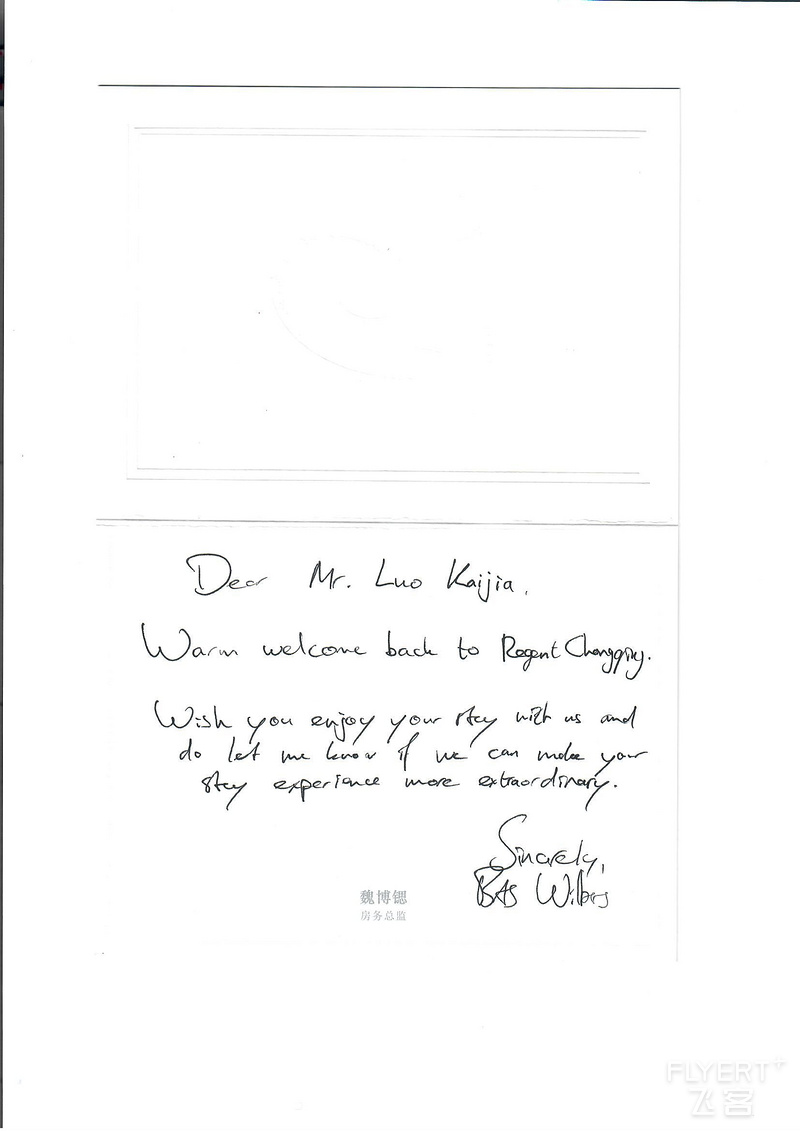 Dear Mr. Luo Kaijia,
Warm welcome back to Regent Chongqing.
Wish you enjoy your stay with us and
do let me know if we can make your
stay experience more extraordinary.
Sincerely,
BAS Wilbers
魏博锶
房务总监
FLYERT+
飞客